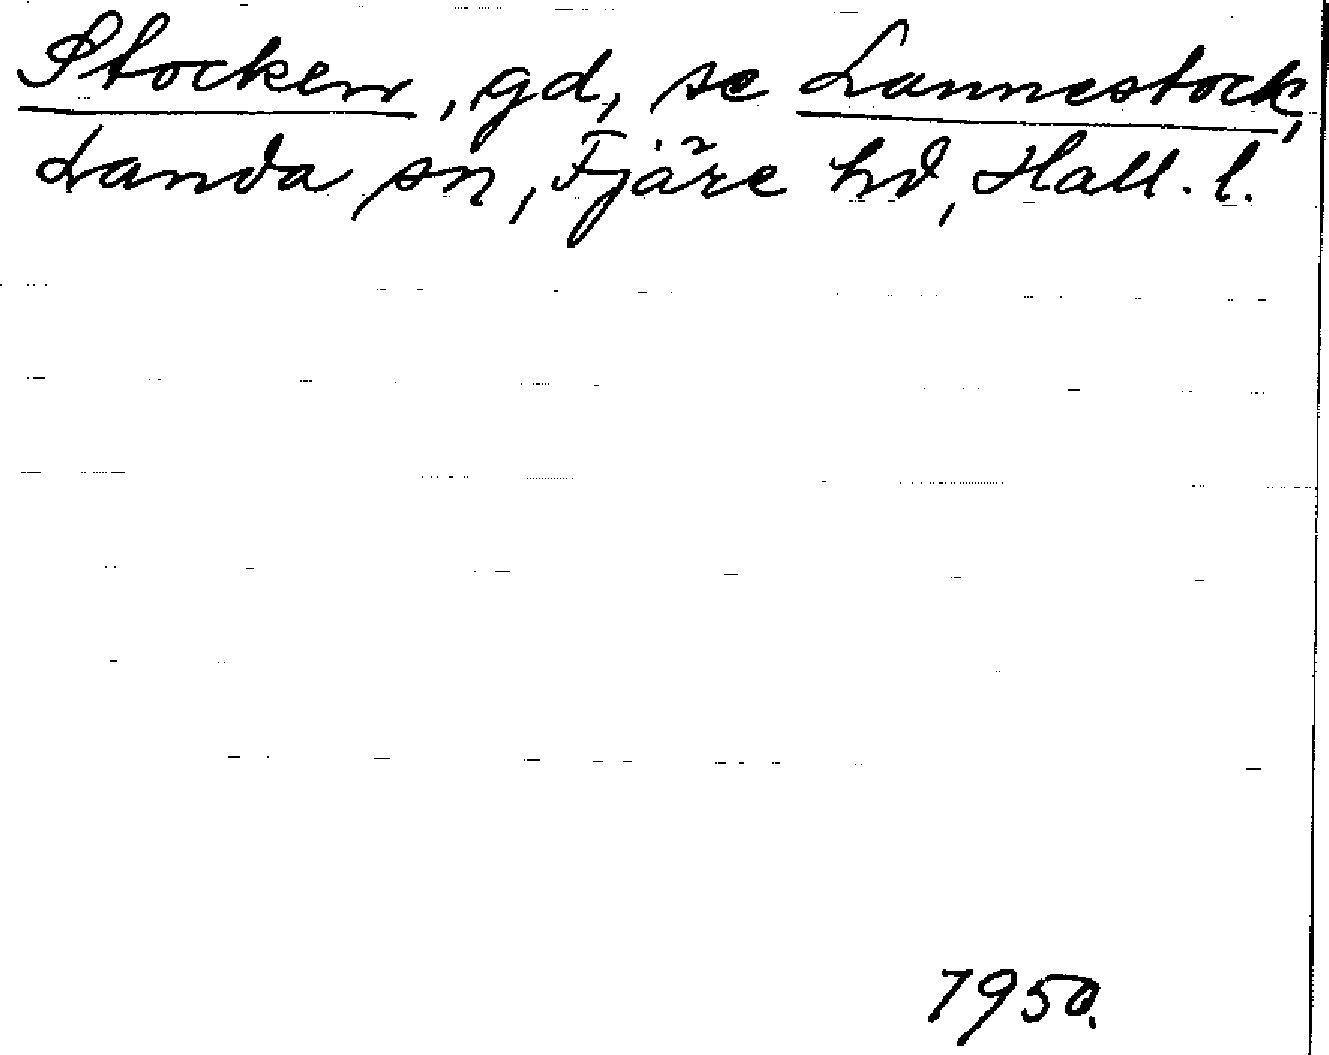 Stocken, gd, se Lannestock,
Landa sn, Fjäre hd, Hall. l.
1950.